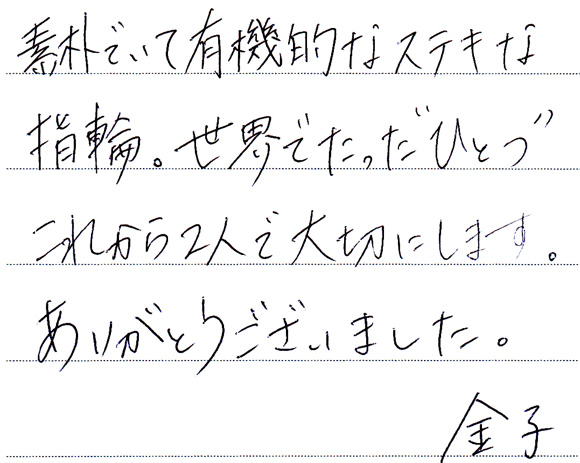 素朴でいて有機的なステキな
指輪。世界でたった"ひとつ"
これから2人で大切にします。
ありがとうございました。
金子